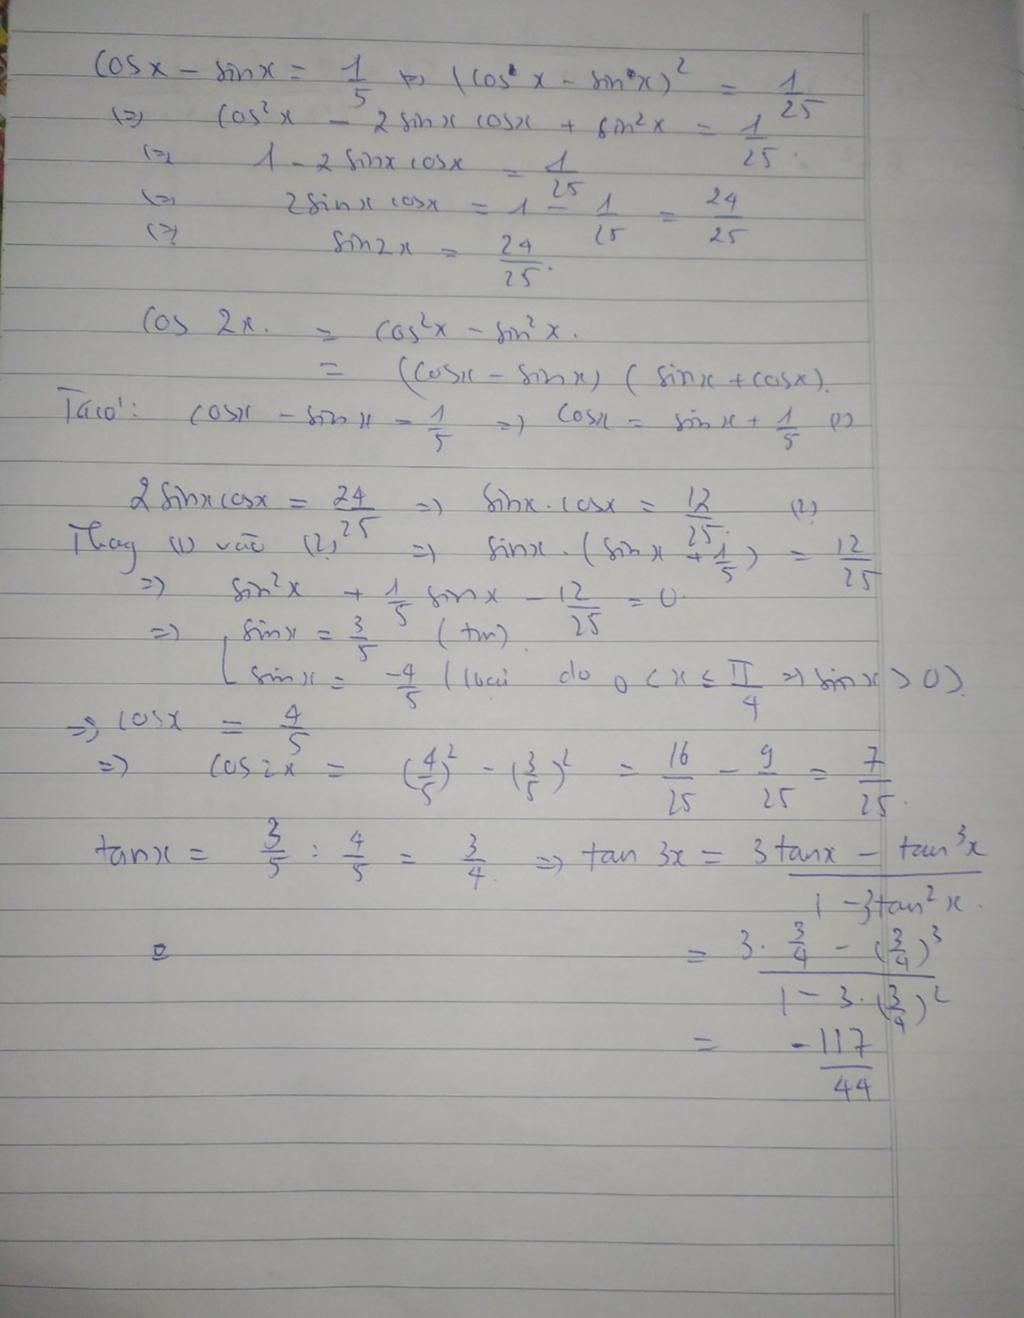 cosx - sinx = 1/5 ⇔ (cos x - sin x)² = 1/25
⇔ cos²x - 2sinx cosx + sin²x = 1/25.
⇔ 1 - 2sinx cosx = 1/25
⇔ 2sinx cosx = 1 - 1/25 = 24/25
⇔ sin2x = 24/25.
Cos 2x. = cos²x - sin²x.
= (cosx - sinx) (sinx + cosx).
Ta có: cosx - sinx = 1/5 ⇒ cosx = sinx + 1/5 (1)
2sinxcosx = 24/25 ⇒ sinx.cosx = 12/25. (2)
Thay (1) vào (2) ⇒ sinx.(sinx + 1/5) = 12/25
⇒ sin²x + 1/5 sinx - 12/25 = 0.
⇒ [ sinx = 3/5 (tm).
sinx = -4/5 (loại do 0 < x ≤ π/4 ⇒ sinx > 0).
⇒ cosx = 4/5
⇒ cos2x = (4/5)² - (3/5)² = 16/25 - 9/25 = 7/25.
tanx = 3/5 : 4/5 = 3/4. ⇒ tan 3x = (3tanx - tan³x)/(1 - 3tan²x).
= (3. 3/4 - (3/4)³)/(1 - 3.(3/4)²)
= -117/44